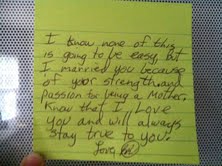 I know none of this
is going to be easy, but
I married you because
of your strength and
passion for being a mother.
Know that I love
you and will always
stay true to you.
Love,